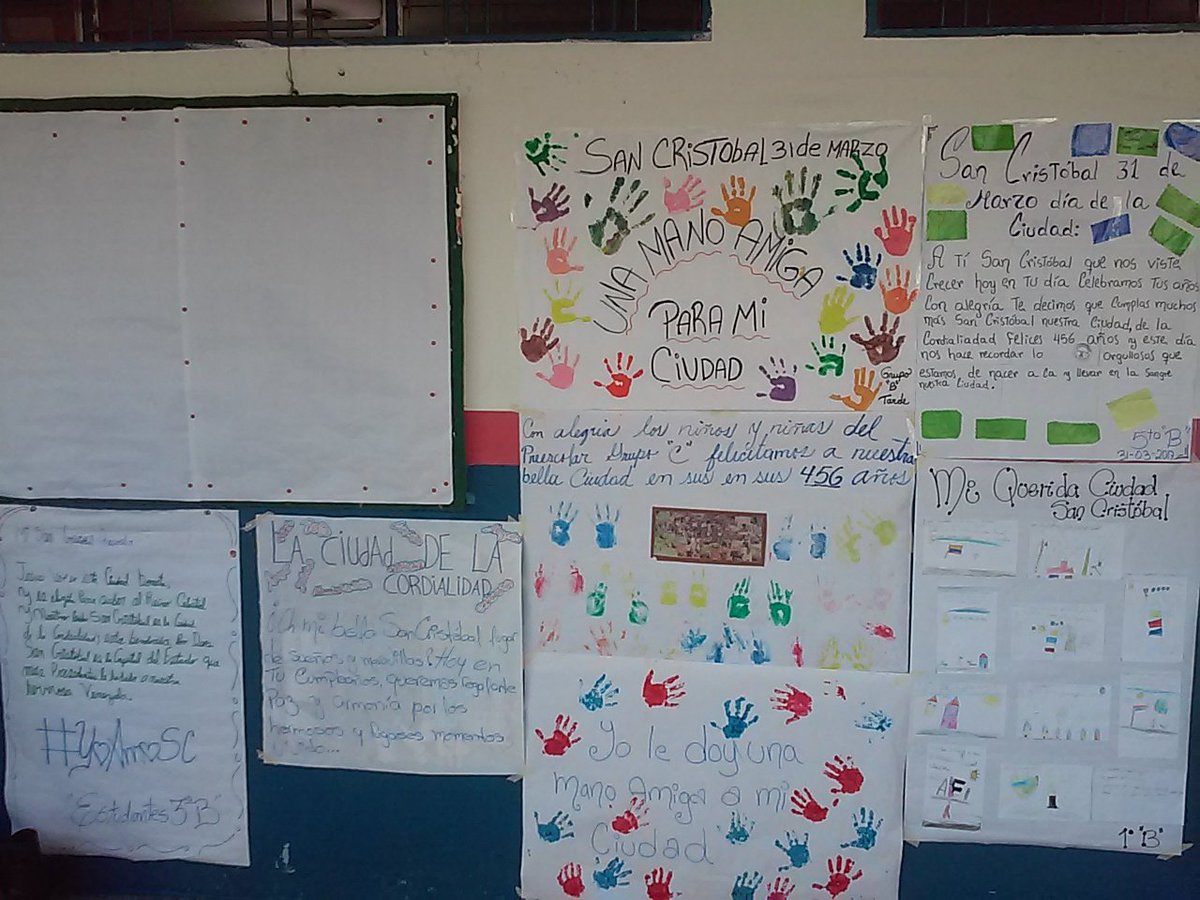 SAN CRISTOBAL 31 de MARZO
UNA MANO AMIGA
PARA MI
CIUDAD
Grupo
"B"
Tarde
San Cristóbal 31 de
Marzo día de la
Ciudad:
A Tí San Cristóbal que nos viste
Crecer hoy en Tu día Celebramos Tus años
Con alegría Te decimos que Cumplas muchos
más San Cristóbal nuestra Ciudad, de la
Cordialiadad Felices 456 años y este día
nos hace recordar lo orgullosos que
estamos, de nacer a la y llevar en la Sangre
nuestra Ciudad.
5to "B"
31-03-2017
Con alegria los niños y niñas del
Preescolar Grupo "C" felicitamos a nuestra
bella Ciudad en sus en sus 456 años
Mi Querida Ciudad
San Cristóbal
AFI
1° "B"
LA CiudAd DE LA
CORDIALIDAD
¡Oh mi bella San Cristóbal lugar
de sueños y maravillas! Hoy en
Tu Cumpleaños, queremos regalarte
Paz y armonía por los
hermosos y momentos
Yo le doy una
Mano Amiga a mi
Ciudad
este Ciudad Bonita
San Cristobal es la Ciudad
de la Cordialidad
San Cristobal es la Capital del Estado que
más Presidentes le ha dado a nuestra
hermosa Venezuela.
#YoAmoSC
"Estudiantes 3° B"